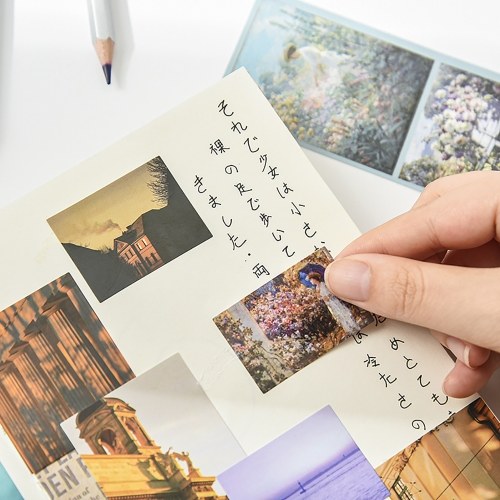 それで少女は小さ めとても
裸の足で歩いて は冷たさの
きました・両